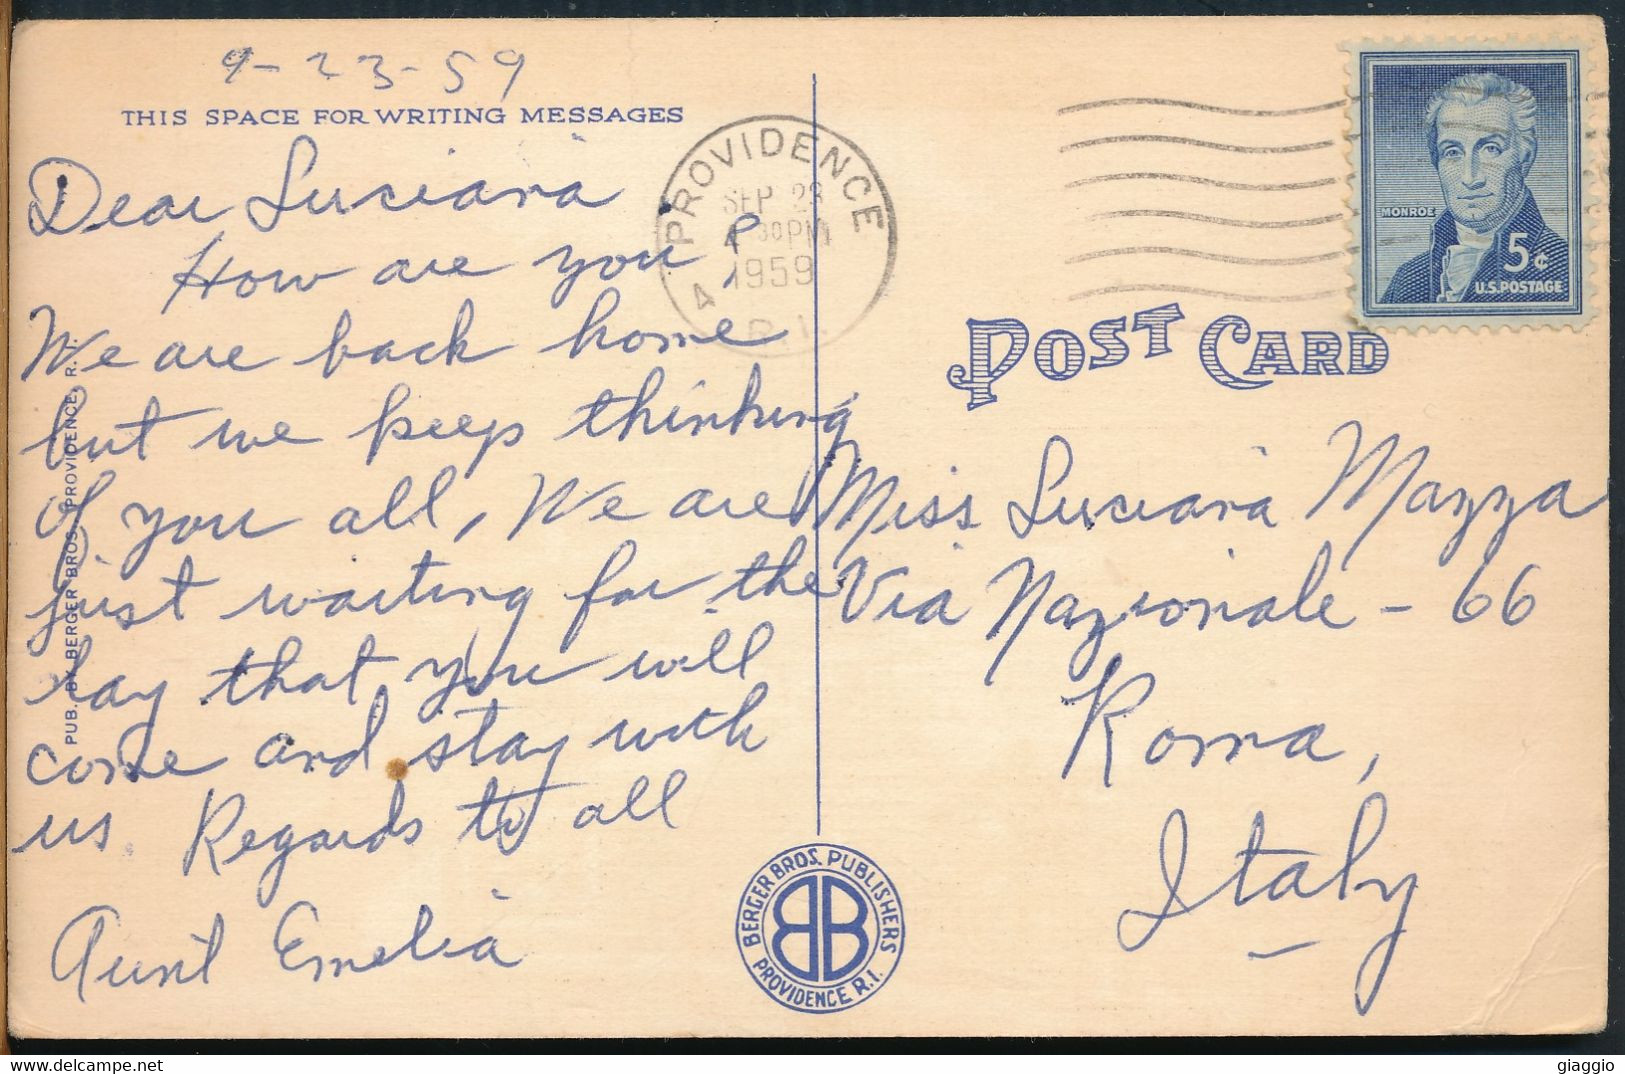 9-23-59
THIS SPACE FOR WRITING MESSAGES
Dear Luciana
How are you?
We are back home
but we keep thinking
of you all, We are
just waiting for the
day that you will
come and stay with
us. Regards to all
Aunt Emelia
PUB. BY BERGER BROS., PROVIDENCE, R. I.
PROVIDENCE
SEP 23
30 PM
1959
R. I.
4
MONROE
5¢
U.S. POSTAGE
POST CARD
Miss Luciana Mazza
Via Nazionale - 66
Roma,
Italy
BERGER BROS. PUBLISHERS
BB
PROVIDENCE R.I.
giaggio